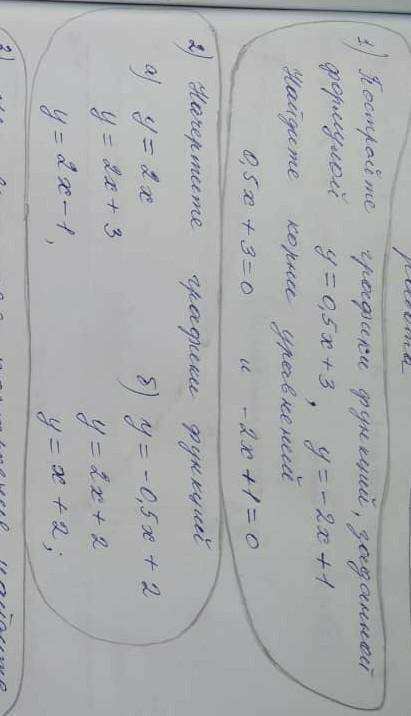 работа
1) Постройте графики функций, заданной
формулой y = 0,5x + 3, y = -2x + 1
Найдите корни уравнений
0,5x + 3 = 0 и -2x + 1 = 0
2) Начертите графики функций
а) y = 2x б) y = -0,5x + 2
y = 2x + 3 y = 2x + 2
y = 2x - 1, y = x + 2;
3)